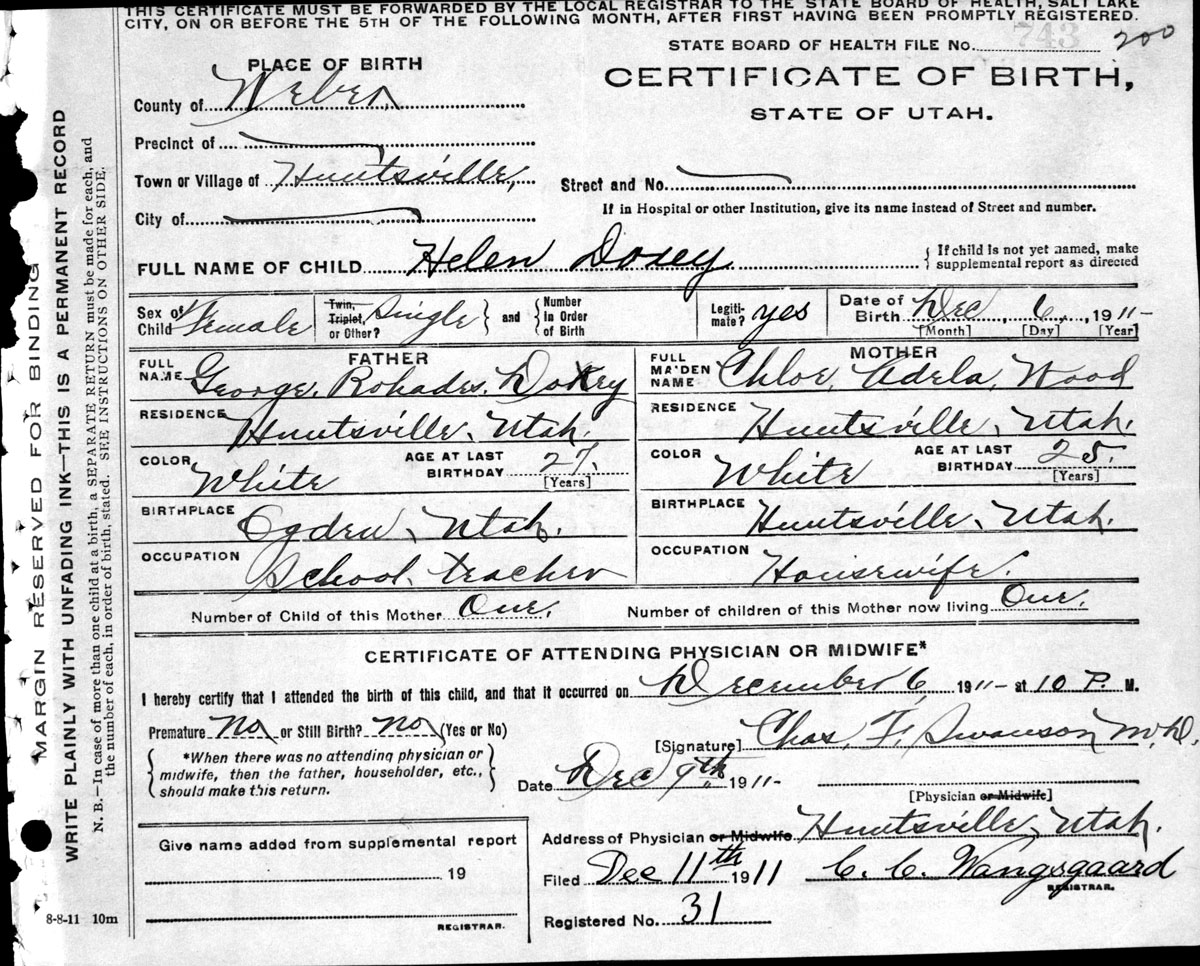 THIS CERTIFICATE MUST BE FORWARDED BY THE LOCAL REGISTRAR TO THE STATE BOARD OF HEALTH, SALT LAKE
CITY, ON OR BEFORE THE 5TH OF THE FOLLOWING MONTH, AFTER FIRST HAVING BEEN PROMPTLY REGISTERED.
STATE BOARD OF HEALTH FILE No. 743 200
PLACE OF BIRTH
CERTIFICATE OF BIRTH,
STATE OF UTAH.
County of Weber
Precinct of
Town or Village of Huntsville,
Street and No.
City of
If in Hospital or other Institution, give its name instead of Street and number.
FULL NAME OF CHILD Helen Doxey
{ If child is not yet named, make
supplemental report as directed
Sex of Child Female
Twin, Triplet, or Other? Single } and { Number In Order of Birth
Legiti-mate? yes
Date of Birth Dec 6, 1911-
[Month] [Day] [Year]
FATHER
FULL NAME George. Rohades. Doxey
MOTHER
FULL MAIDEN NAME Chloe, Adela, Wood
RESIDENCE Huntsville, Utah.
RESIDENCE Huntsville, Utah.
COLOR White AGE AT LAST BIRTHDAY 27. [Years]
COLOR White AGE AT LAST BIRTHDAY 25. [Years]
BIRTHPLACE Ogden, Utah.
BIRTHPLACE Huntsville, Utah.
OCCUPATION School, teacher
OCCUPATION Housewife.
Number of Child of this Mother One.
Number of children of this Mother now living One.
CERTIFICATE OF ATTENDING PHYSICIAN OR MIDWIFE*
I hereby certify that I attended the birth of this child, and that it occurred on December 6, 1911- at 10 P. M.
Premature No or Still Birth? no (Yes or No)
{ *When there was no attending physician or
midwife, then the father, householder, etc.,
should make this return. }
[Signature] Chas, F, Swanson M.D.
Date Dec 9th 1911-
[Physician or Midwife]
Address of Physician or Midwife Huntsville, Utah.
Filed Dec 11th 1911 C. C. Wangsgaard
REGISTRAR.
Registered No. 31
Give name added from supplemental report
19
REGISTRAR.
8-8-11 10m
MARGIN RESERVED FOR BINDING
WRITE PLAINLY WITH UNFADING INK—THIS IS A PERMANENT RECORD
N. B.—In case of more than one child at a birth, a SEPARATE RETURN must be made for each, and
the number of each, in order of birth, stated. SEE INSTRUCTIONS ON OTHER SIDE.